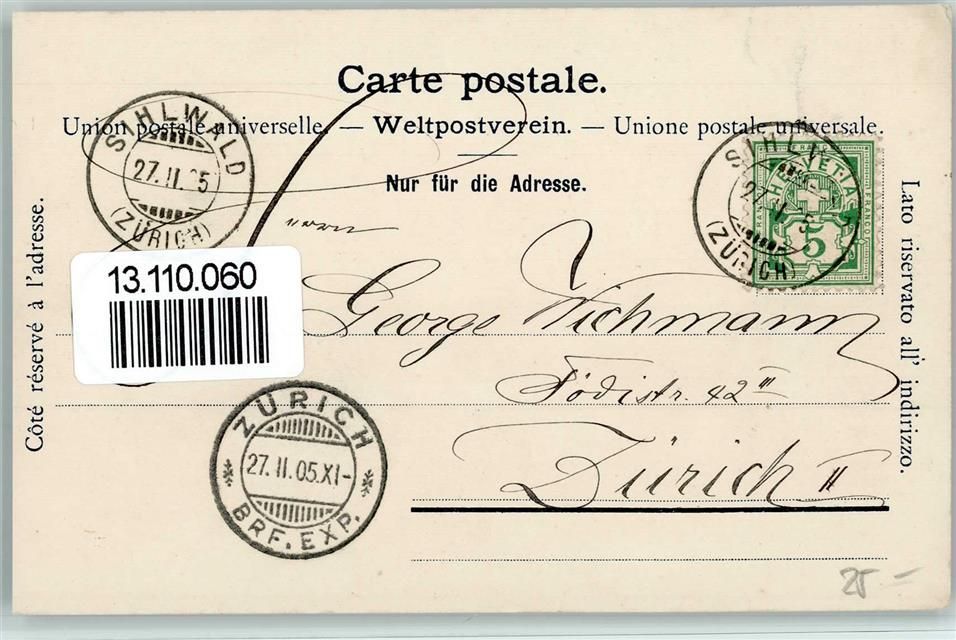 Carte postale.
Union postale universelle. — Weltpostverein. — Unione postale universale.
Nur für die Adresse.
Côté réservé à l'adresse.
Lato riservato all' indirizzo.
SIHLWALD
27.II.05
(ZÜRICH)
SIHLWALD
27.II.05
(ZÜRICH)
HELVETIA
FRANCO
5
13.110.060
George Wichmann
42 III
Zürich II
ZÜRICH
27.II.05.XI-
BRF. EXP.
25 –